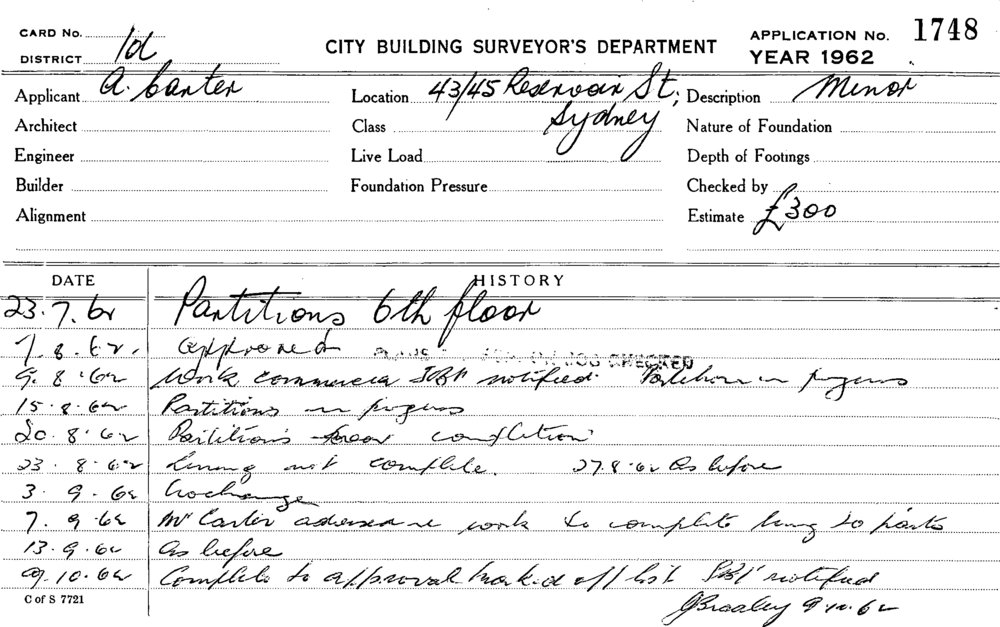 CARD No.
DISTRICT 1d
CITY BUILDING SURVEYOR'S DEPARTMENT
APPLICATION No. 1748
YEAR 1962
Applicant A. Carter
Location 43/45 Reservoir St; Sydney
Description Minor
Architect
Class
Nature of Foundation
Engineer
Live Load
Depth of Footings
Builder
Foundation Pressure
Checked by
Alignment
Estimate £300
DATE HISTORY
23.7.62 Partitions 6th floor
7.8.62. approved PLANS JOB CHECKED
9.8.62 Work commenced notified. Partition in progress
15.8.62 Partitions in progress
20.8.62 Partitions near completion
23.8.62 Lining not complete. 27.8.62 As before
3.9.62 No change
7.9.62 Mr Carter advised re work to complete lining to parts
13.9.62 As before
9.10.62 Complete to approval marked off list notified
C of S 7721
9.10.62